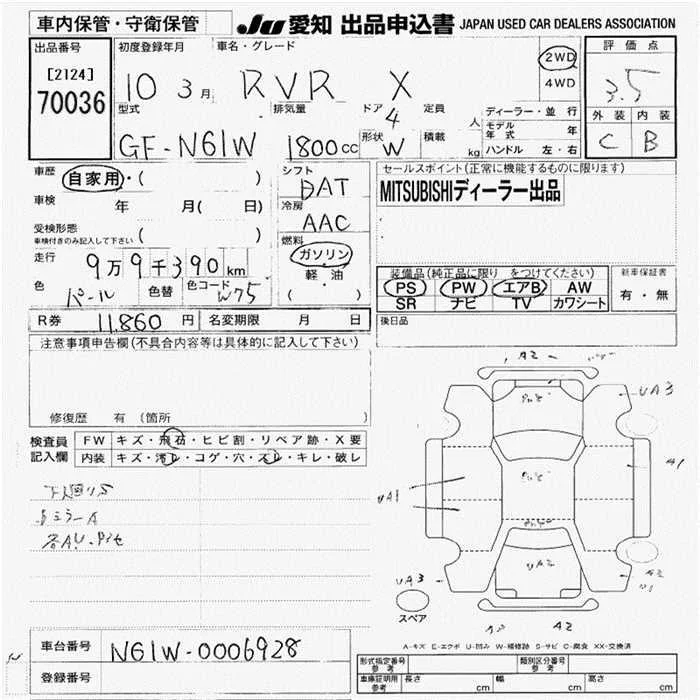 車内保管・守衛保管
JU 愛知 出品申込書 JAPAN USED CAR DEALERS ASSOCIATION
出品番号
[2124]
70036
初度登録年月
10 3月
車名・グレード
RVR X
2WD
4WD
評価点
3.5
外装 内装
C B
型式
GF-N61W
排気量
1800cc
ドア
4
形状
W
定員
人
積載
kg
ディーラー・並行
モデル年式 年
ハンドル 左・右
車歴
自家用・( )
車検 年 月( 日)
受検形態
車検付きのみ記入して下さい
走行
9万9千390km
色
パール
色替
色コード
W75
シフト
DAT
冷房
AAC
燃料
ガソリン
軽・油
( ・ )
セールスポイント(正常に機能するものに限ります)
MITSUBISHIディーラー出品
装備品(純正品に限り をつけてください)
PS PW エアB AW
SR ナビ TV カワシート
新車保証書
有・無
後日品
R券 11,860円
名変期限 月 日
注意事項申告欄(不具合内容等は具体的に記入して下さい)
修復歴 有(箇所
検査員記入欄
FW キズ・飛石・ヒビ割・リペア跡・X要
内装 キズ・汚レ・コゲ・穴・スレ・キレ・破レ
ミラーA
A2
UA3
A1
UA1
UA2
UA3
A2
U1
スペア
A2
A-キズ E-エクボ U-凹み W-補修跡 S-サビ C-腐食 XX-交換済
車台番号 N61W-0006928
登録番号
形式指定番号 参考
類別区分番号 参考
車庫証明用 参考
長さ cm
幅 cm
高さ cm